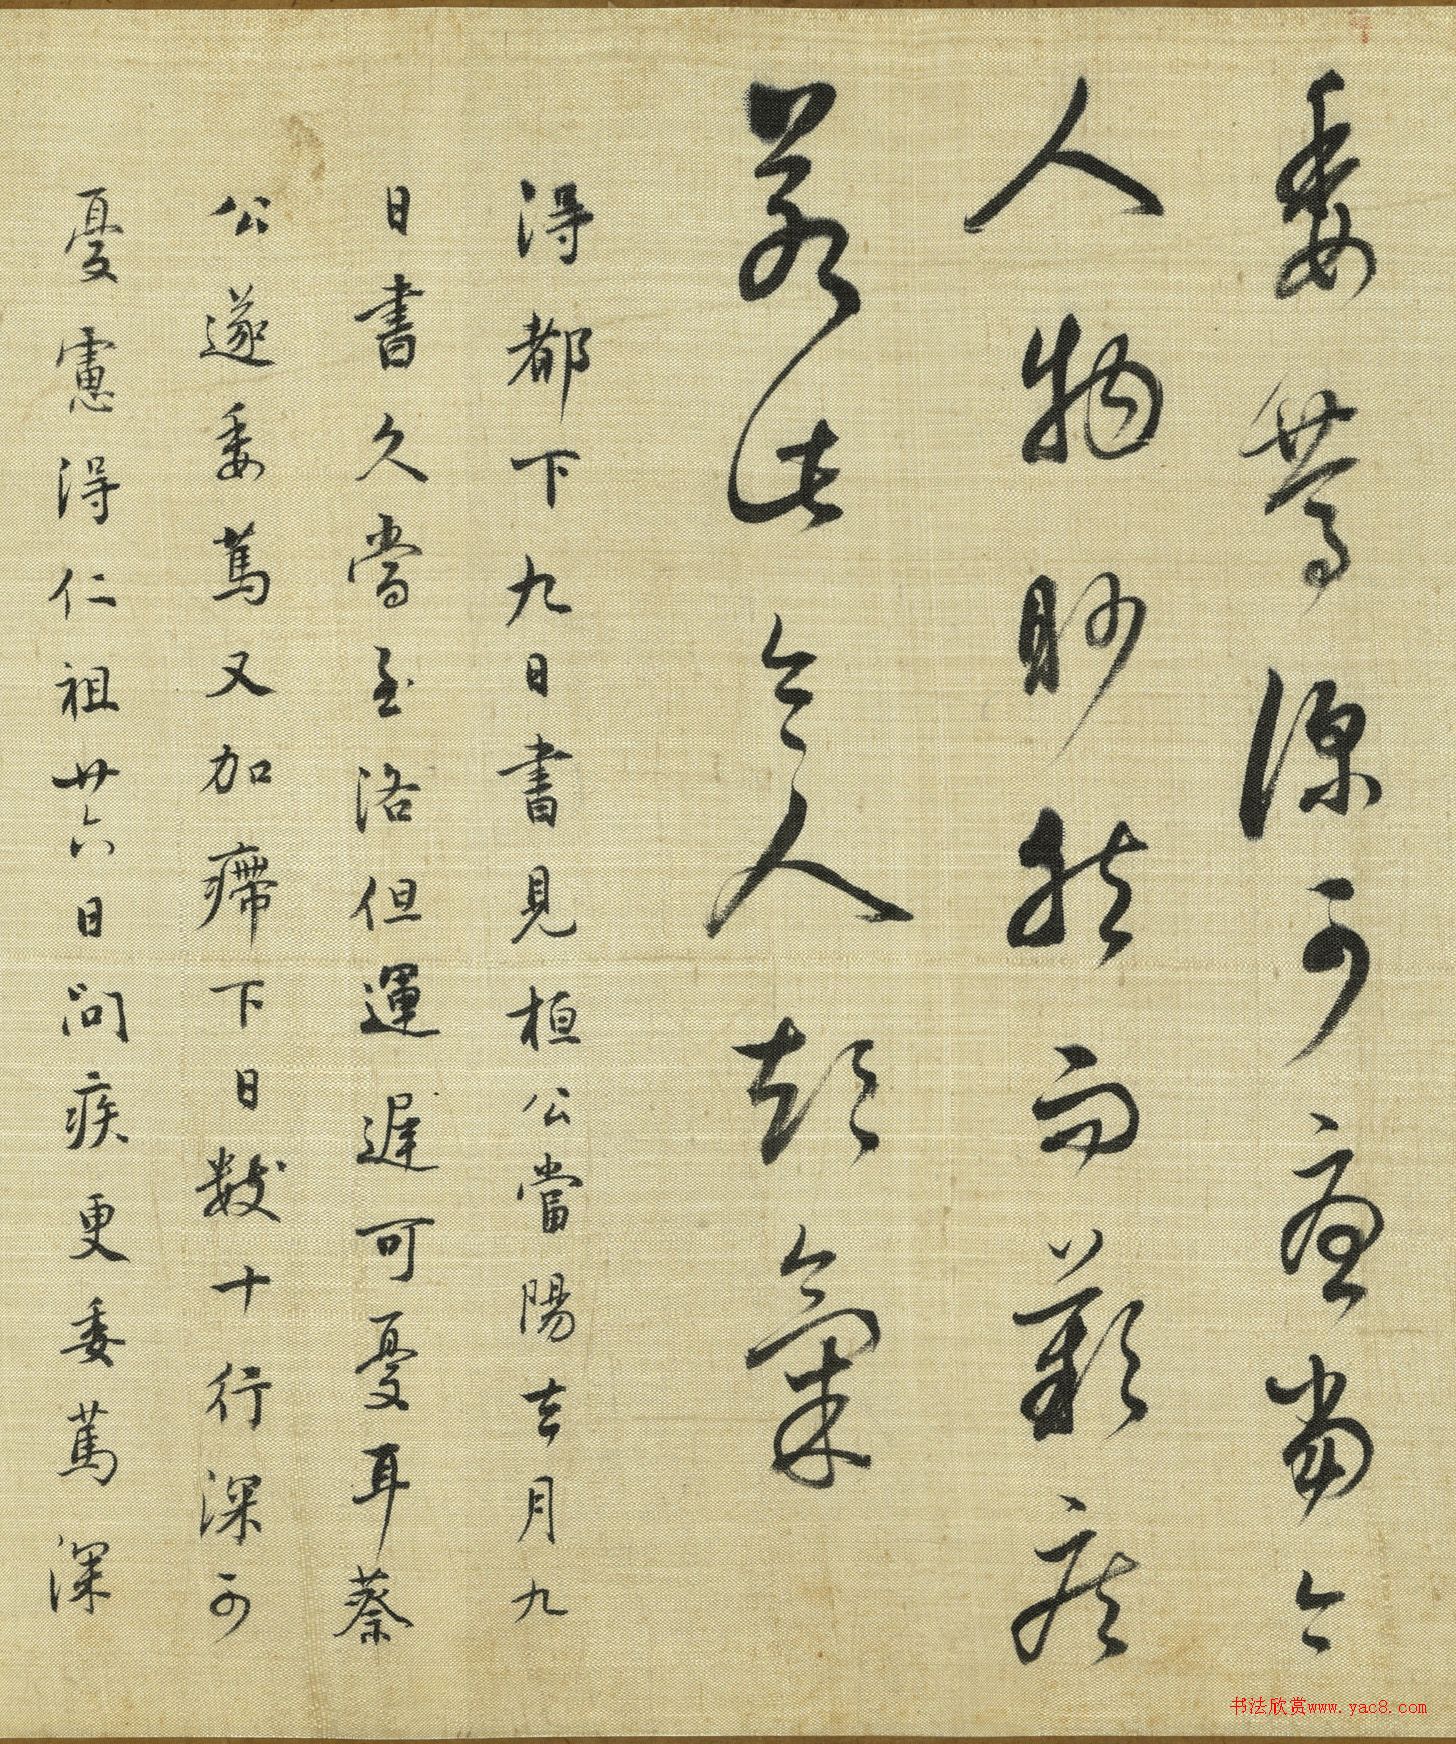 委篤深可憂當今
人物眇然而艱疾
若此令人短氣
得都下九日書見桓公當陽去月九
日書久當至洛但運遲可憂耳蔡
公遂委篤又加癘下日數十行深可
憂慮得仁祖廿六日問疾更委篤深
书法欣赏www.yac8.com